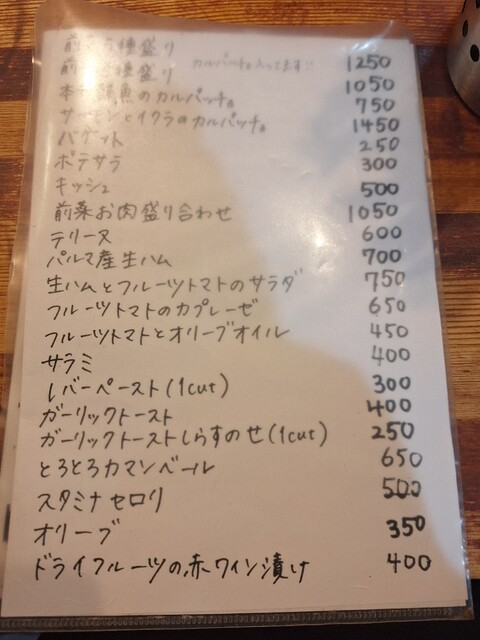 前菜 種盛り 1250
前 種盛り カルパッチョ入ってます!! 1050
本 鮮魚のカルパッチョ 750
サーモンとイクラのカルパッチョ 1450
バゲット 250
ポテサラ 300
キッシュ 500
前菜お肉盛り合わせ 1050
テリーヌ 600
パルマ産生ハム 700
生ハムとフルーツトマトのサラダ 750
フルーツトマトのカプレーゼ 650
フルーツトマトとオリーブオイル 450
サラミ 400
レバーペースト(1cut) 300
ガーリックトースト 400
ガーリックトーストしらすのせ(1cut) 250
とろとろカマンベール 650
スタミナセロリ 500
オリーブ 350
ドライフルーツの赤ワイン漬け 400